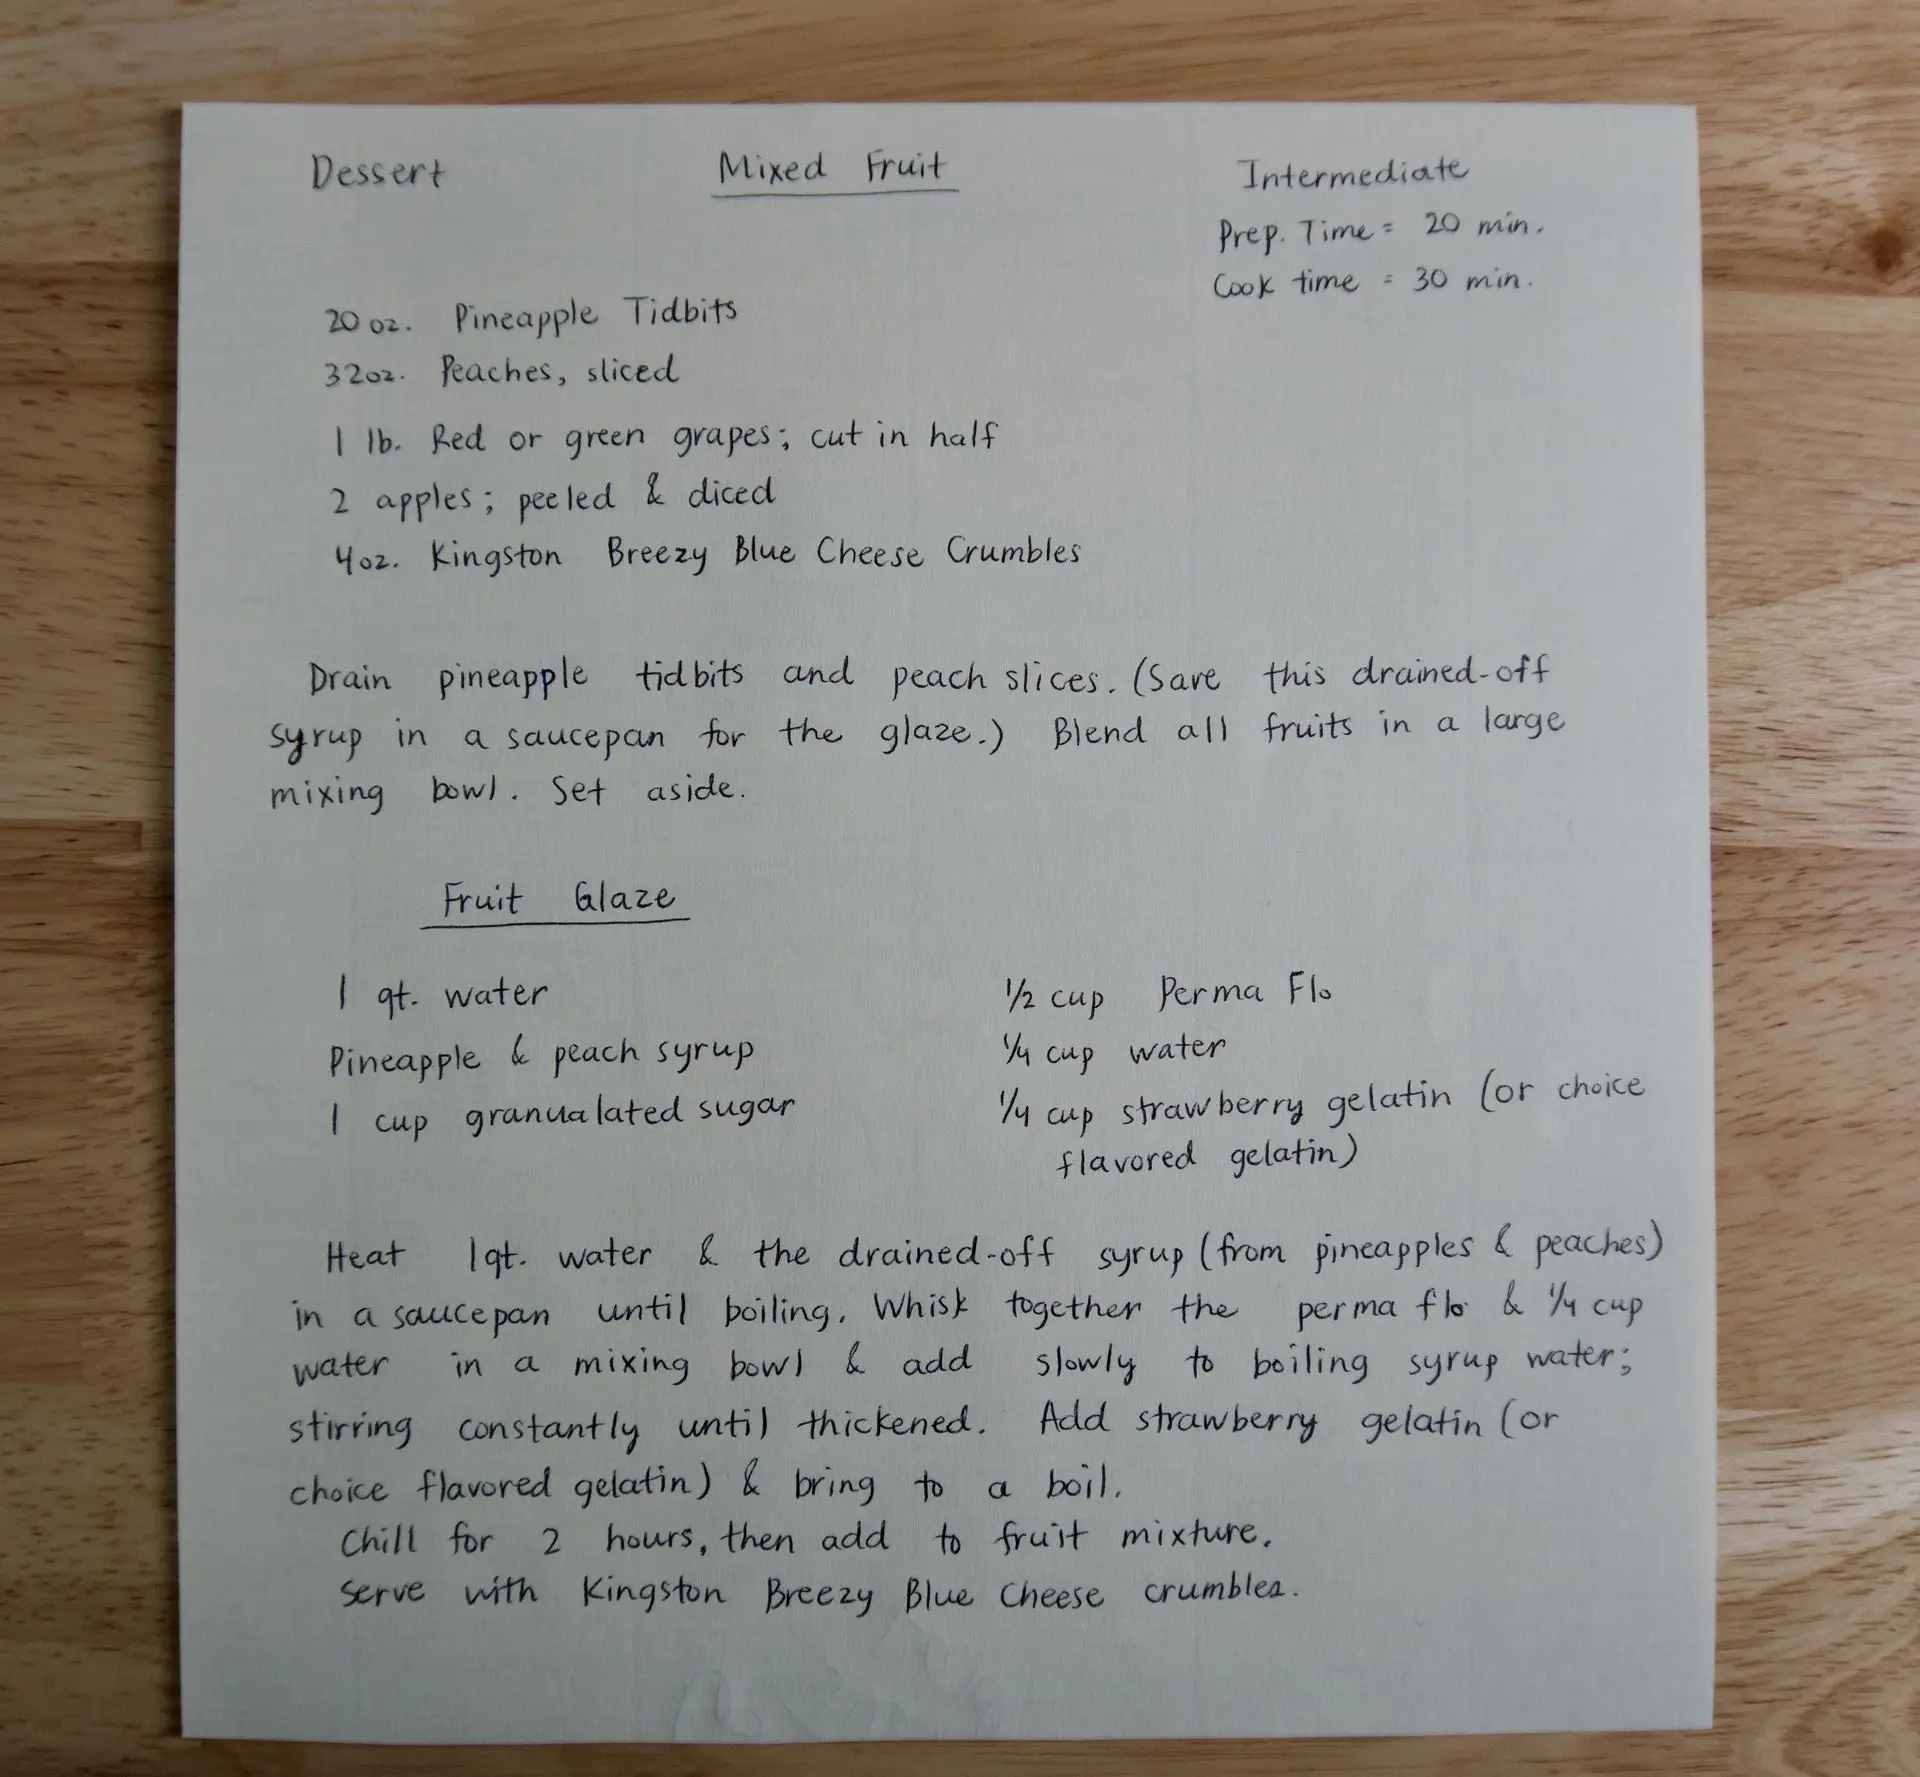 Dessert
Mixed Fruit
Intermediate
Prep. Time = 20 min.
Cook time = 30 min.
20 oz. Pineapple Tidbits
32oz. Peaches, sliced
1 lb. Red or green grapes; cut in half
2 apples; peeled & diced
4oz. Kingston Breezy Blue Cheese Crumbles
Drain pineapple tidbits and peach slices. (Save this drained-off
syrup in a saucepan for the glaze.) Blend all fruits in a large
mixing bowl. Set aside.
Fruit Glaze
1 qt. water
Pineapple & peach syrup
1 cup granualated sugar
1/2 cup Perma Flo
1/4 cup water
1/4 cup strawberry gelatin (or choice
flavored gelatin)
Heat 1qt. water & the drained-off syrup (from pineapples & peaches)
in a saucepan until boiling. Whisk together the perma flo & 1/4 cup
water in a mixing bowl & add slowly to boiling syrup water;
stirring constantly until thickened. Add strawberry gelatin (or
choice flavored gelatin) & bring to a boil.
Chill for 2 hours, then add to fruit mixture.
Serve with Kingston Breezy Blue Cheese crumbles.